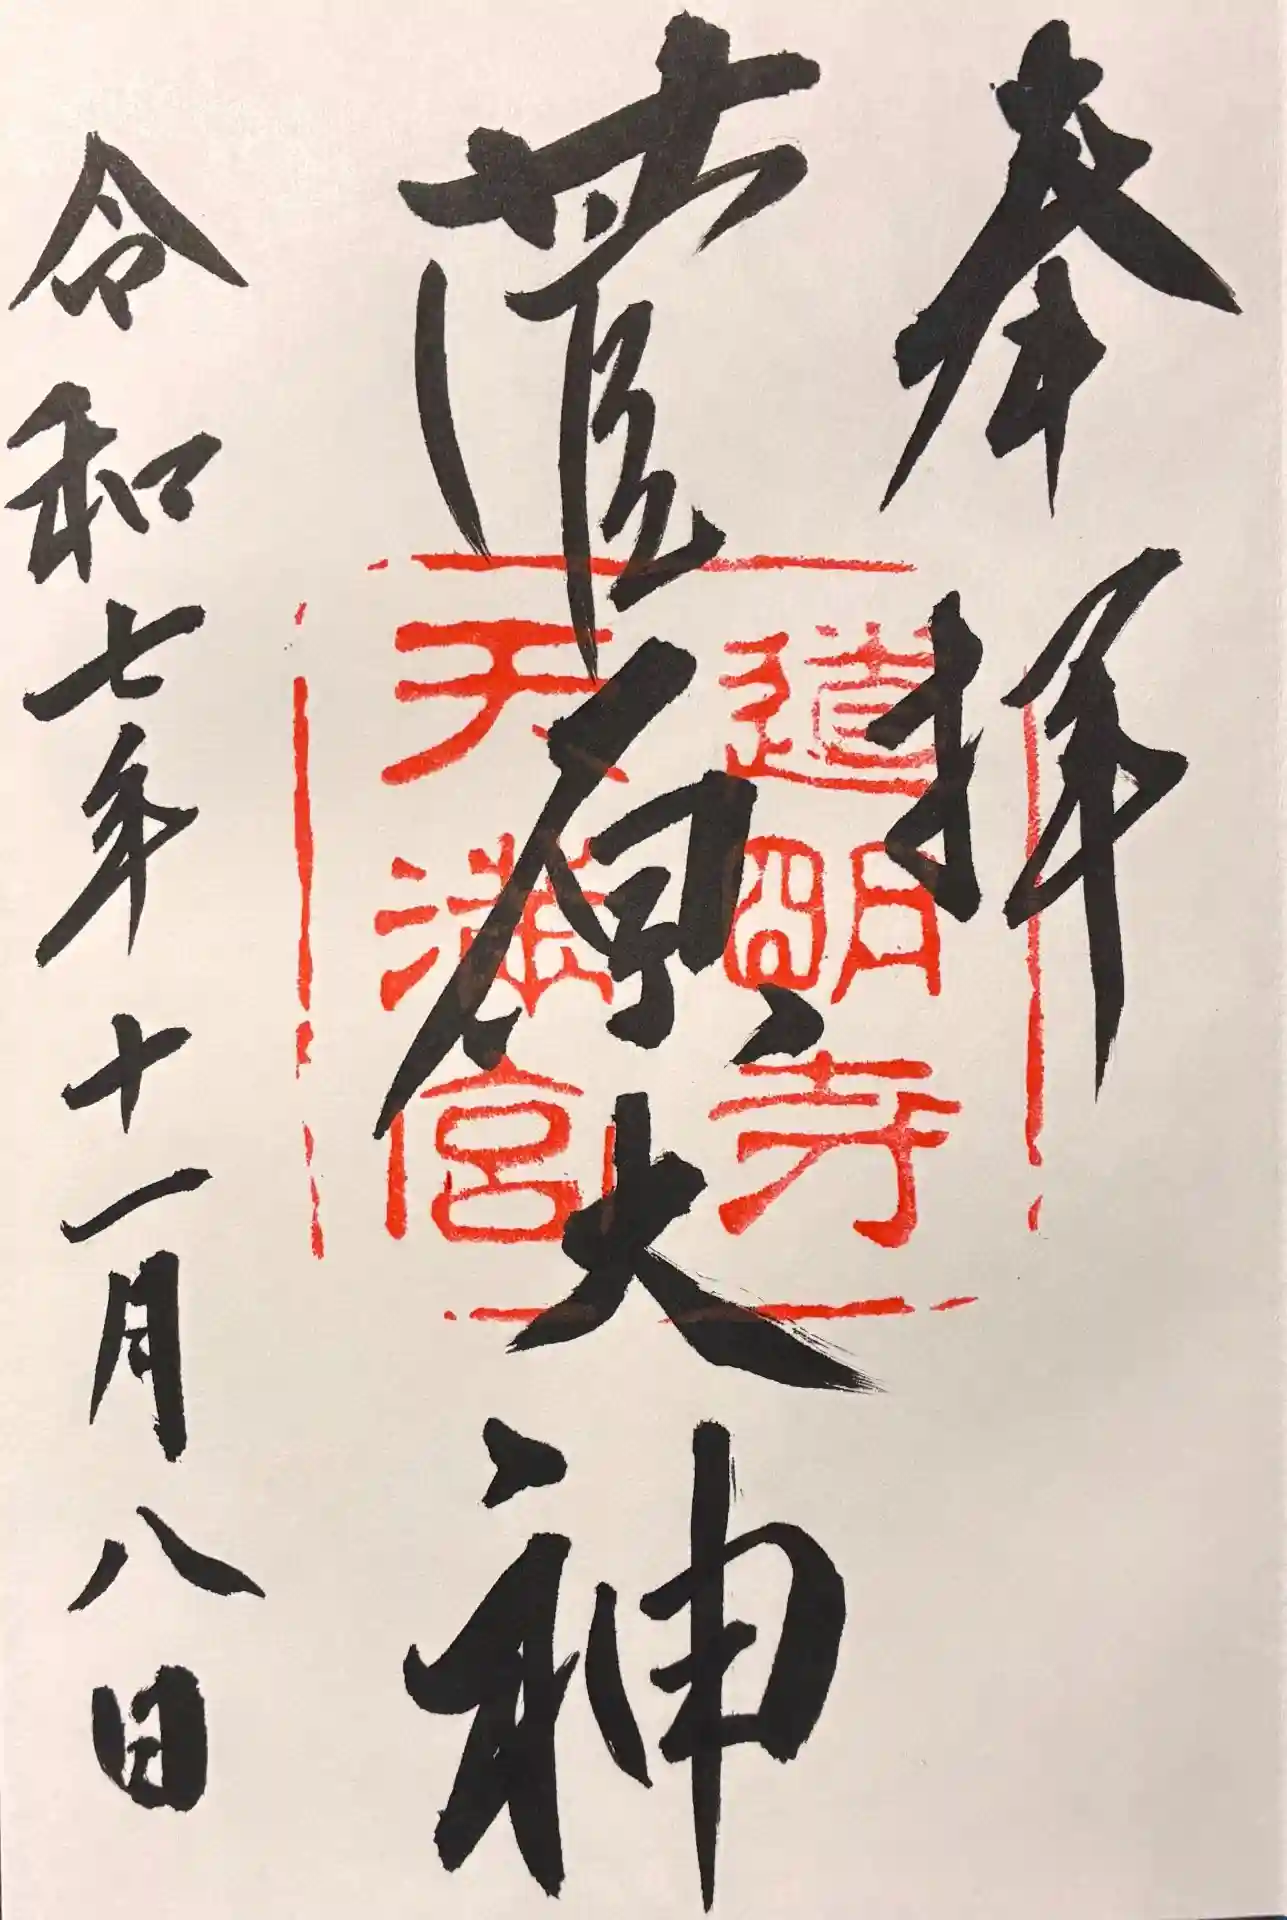 奉拝
菅原大神
道明寺
天満宮
令和七年十一月八日